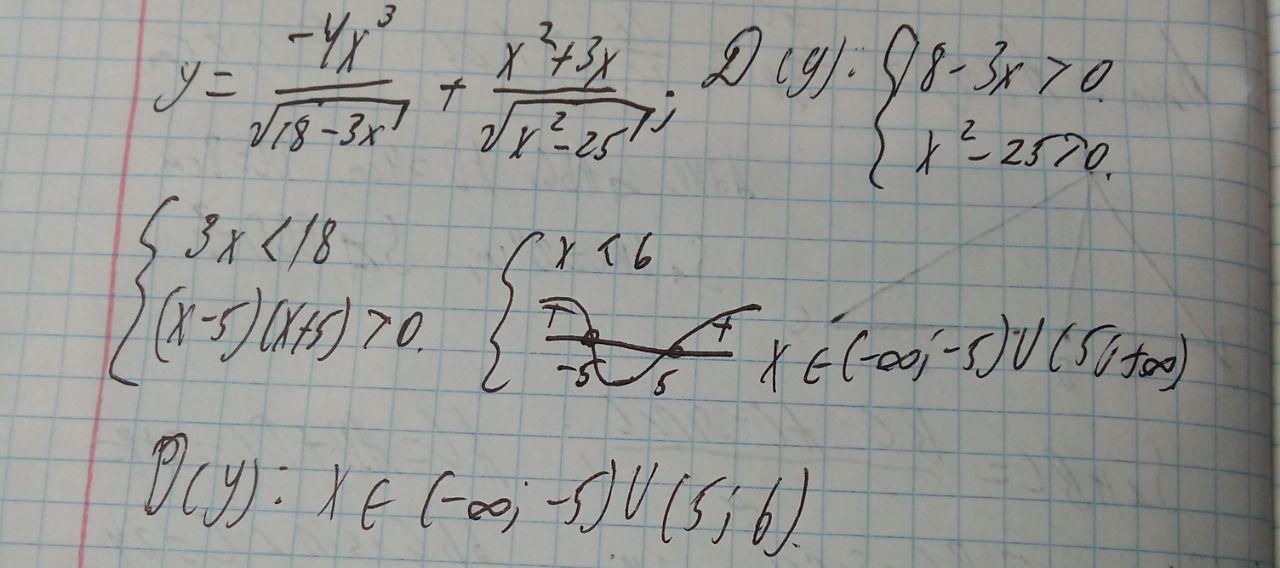 y = \frac{-4x^3}{\sqrt{18-3x}} + \frac{x^2+3x}{\sqrt{x^2-25}}; D(y): \begin{cases} 18-3x>0. \\ x^2-25>0. \end{cases}
\begin{cases} 3x<18 \\ (x-5)(x+5)>0. \end{cases} \begin{cases} x<6 \\ + -5 5 + \end{cases} x∈(-∞;-5)∪(5;+∞)
D(y): x∈(-∞;-5)∪(5;6).